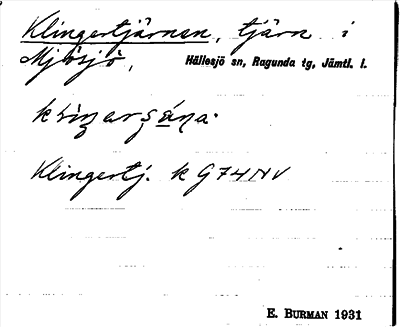 Klingertjärnen, tjärn i
Mjösjö, Hällesjö sn, Ragunda tg, Jämtl. l.
Klingertj. k G74NV
E. BURMAN 1931